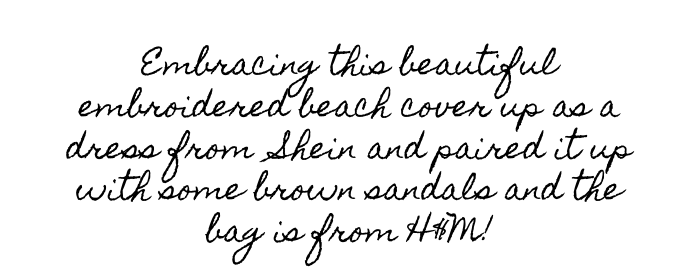 Embracing this beautiful
embroidered beach cover up as a
dress from Shein and paired it up
with some brown sandals and the
bag is from H&M!